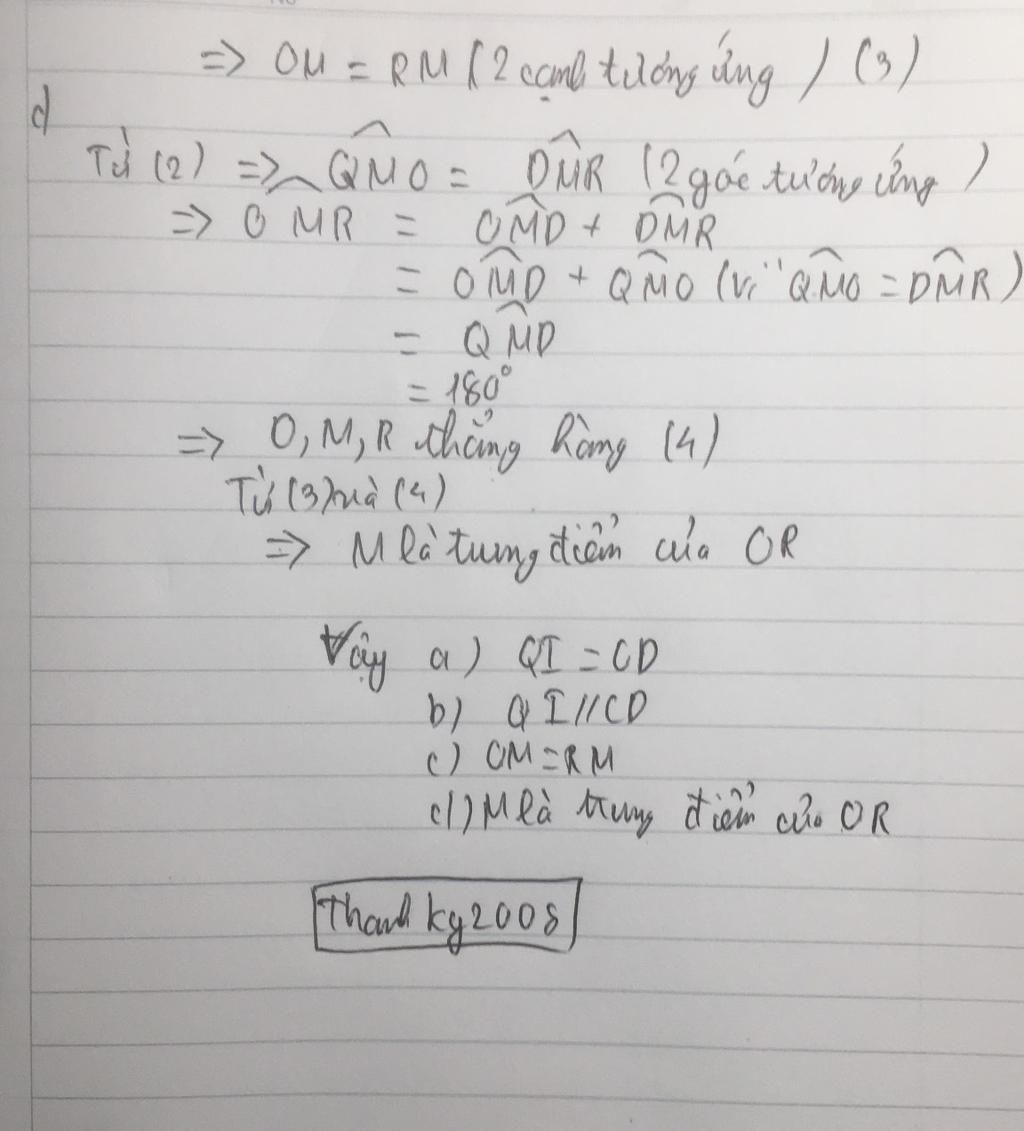 => OM = RM (2 cạnh tương ứng) (3)
d
Từ (2) => QMO = DMR (2 góc tương ứng)
=> OMR = OMD + DMR
= OMD + QMO (vì QMO = DMR)
= QMD
= 180°
=> O, M, R thẳng hàng (4)
Từ (3) và (4)
=> M là trung điểm của OR
Vậy a) QI = CD
b) QI // CD
c) OM = RM
d) M là trung điểm của OR
Thanhky2008